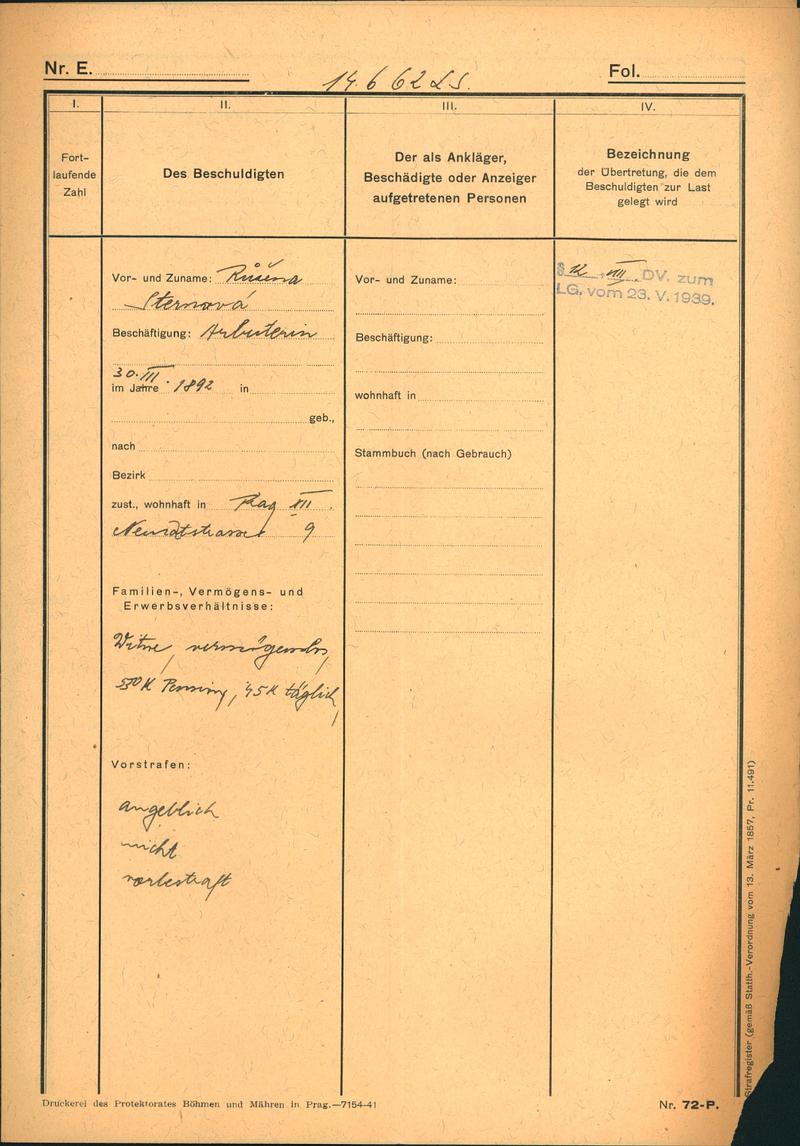 Nr. E.
14662 LS.
Fol.
I.
II.
III.
IV.
Fort-
laufende
Zahl
Des Beschuldigten
Der als Ankläger,
Beschädigte oder Anzeiger
aufgetretenen Personen
Bezeichnung
der Übertretung, die dem
Beschuldigten zur Last
gelegt wird
Vor- und Zuname: Růžena
Sternová
Beschäftigung: Arbeiterin
30. III.
im Jahre 1892 in
geb.,
nach
Bezirk
zust., wohnhaft in Prag XII.
9
Familien-, Vermögens- und
Erwerbsverhältnisse:
Witwe, vermögenslos,
K täglich,
Vorstrafen:
angeblich
nicht
vorbestraft
Vor- und Zuname:
Beschäftigung:
wohnhaft in
Stammbuch (nach Gebrauch)
§ 12 VIII DV. zum
LG. vom 23. V. 1939.
Strafregister (gemäß Statth.-Verordnung vom 13. März 1857, Pr. 11.491)
Druckerei des Protektorates Böhmen und Mähren in Prag.—7154-41
Nr. 72-P.